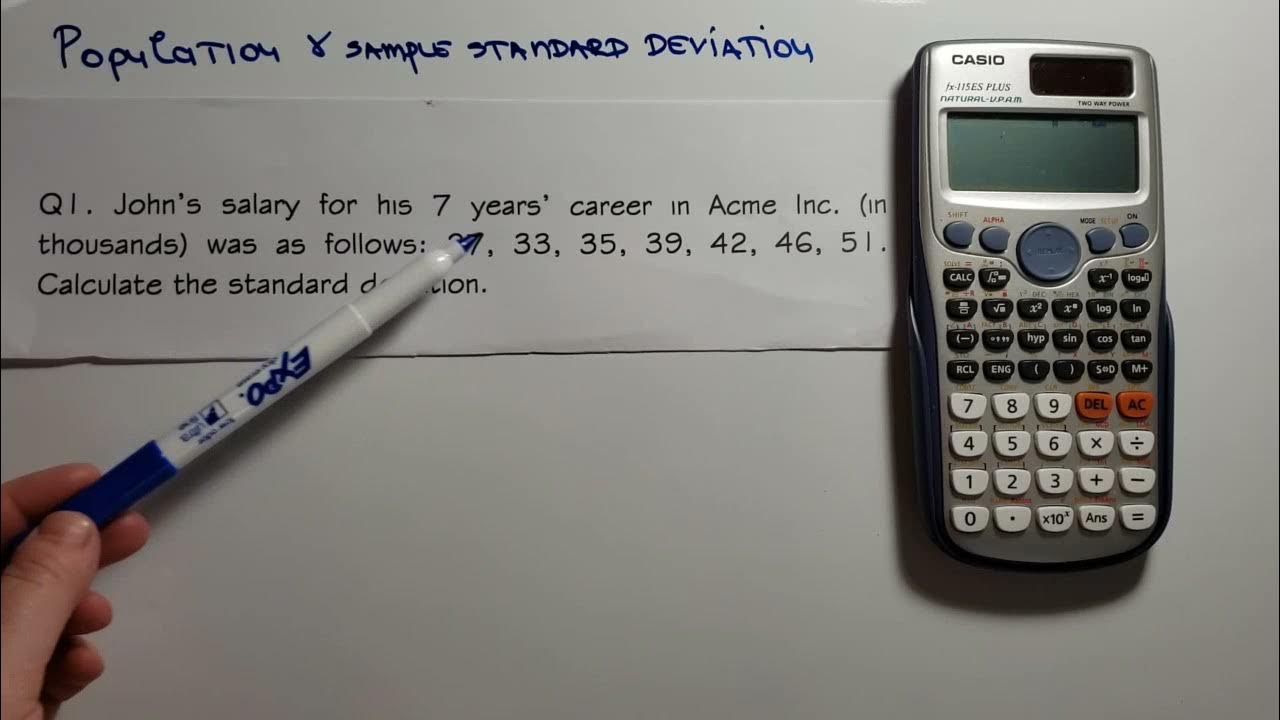 Population & SAMPLE STANDARD DEVIATION
Q1. John's salary for his 7 years' career in Acme Inc. (in
thousands) was as follows: 33, 35, 39, 42, 46, 51.
Calculate the standard
EXPO.
CASIO
fx-115ES PLUS
NATURAL-V.P.A.M.
TWO WAY POWER
SHIFT ALPHA MODE SETUP ON
REPLAY
CALC x⁻¹ log
√ x² log ln
(−) hyp sin cos tan
RCL ENG ( ) S⇔D M+
7 8 9 DEL AC
4 5 6 × ÷
1 2 3 + −
0 . ×10ˣ Ans =